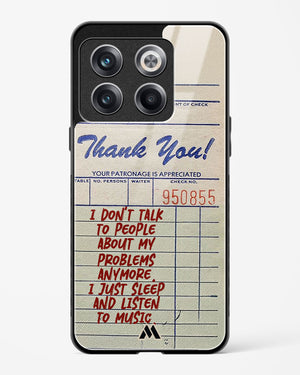 NT OF CHECK
Thank You!
YOUR PATRONAGE IS APPRECIATED
TABLE NO. PERSONS WAITER CHECK NO.
950855
I DON'T TALK
TO PEOPLE
ABOUT MY
PROBLEMS
ANYMORE.
I JUST SLEEP
AND LISTEN
TO MUSIC